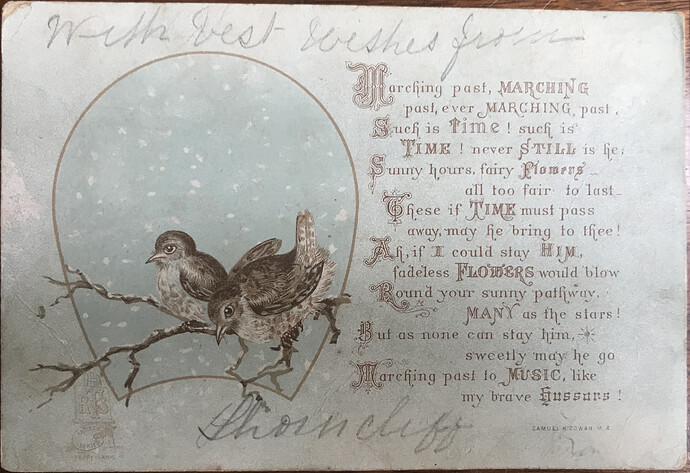 With Best Wishes from
Marching past, MARCHING
past, ever MARCHING, past,
Such is Time! such is
TIME! never STILL is he;
Sunny hours, fairy Flowers
all too fair to last
These if TIME must pass
away, may he bring to thee!
Ah, if I could stay HIM,
fadeless FLOWERS would blow
Round your sunny pathway,
MANY as the stars!
But as none can stay him,
sweetly may he go
Marching past to MUSIC, like
my brave Hussars!
SAMUEL K. COWAN, M.A.
Shorncliff